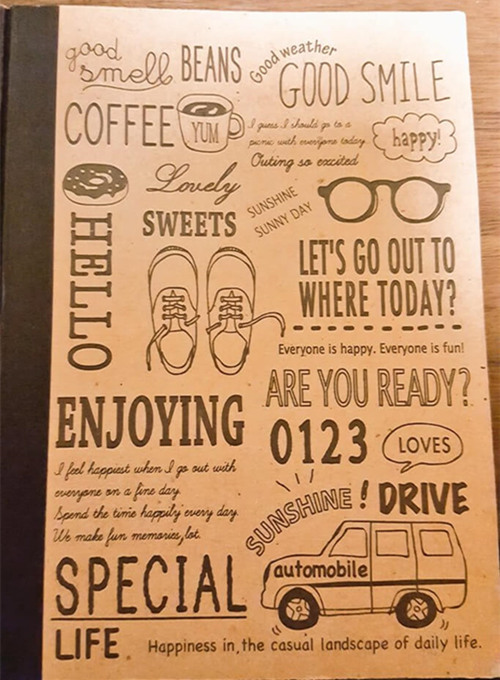 good
smell BEANS
Good weather
GOOD SMILE
COFFEE
YUM
I guess I should go to a
picnic with everyone today.
Outing so excited
happy!
Lovely
SWEETS
SUNSHINE
SUNNY DAY
HELLO
LET'S GO OUT TO
WHERE TODAY?
Everyone is happy. Everyone is fun!
ARE YOU READY?
ENJOYING
0123
LOVES
I feel happiest when I go out with
everyone on a fine day.
Spend the time happily every day.
We make fun memories, lot.
SUNSHINE! DRIVE
automobile
SPECIAL
LIFE
Happiness in, the casual landscape of daily life.